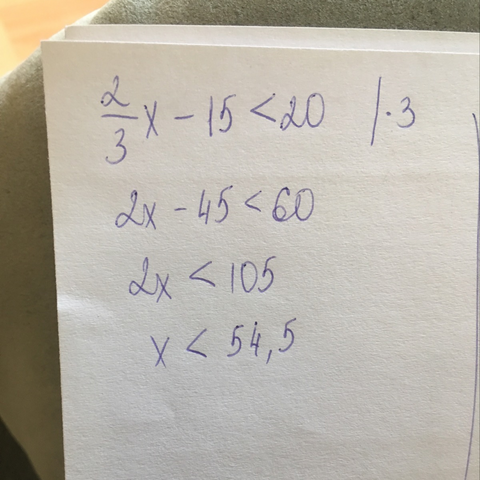 2/3 x - 15 < 20 | · 3
2x - 45 < 60
2x < 105
x < 54,5